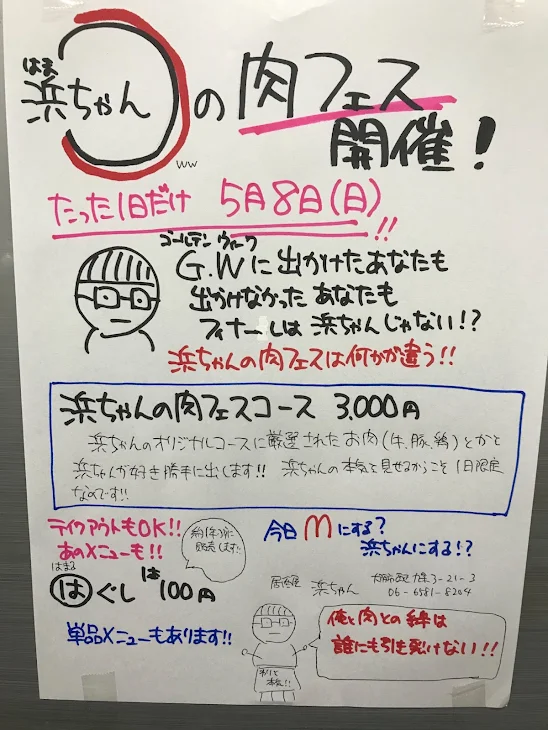 はま
浜ちゃんの肉フェス
開催!
ww
たった1日だけ 5月8日(日)!!
ゴールデンウィーク
G.Wに出かけたあなたも
出かけなかったあなたも
フィナーレは浜ちゃんじゃない!?
浜ちゃんの肉フェスは何かが違う!!
浜ちゃんの肉フェスコース 3,000円
浜ちゃんのオリジナルコースに厳選されたお肉(牛、豚、鶏)とかと
浜ちゃんが好き勝手に出します!! 浜ちゃんの本気を見せるからこそ1日限定
なのです!!
テイクアウトもOK!!
あのメニューも!!
約1年ぶりに
販売します!!
今日mにする?
浜ちゃんにする!?
はまる
はぐしは100円
居酒屋 浜ちゃん
3-21-3
06-6581-8204
単品メニューもあります!!
俺と肉との絆は
誰にも引き裂けない!!
本気!!